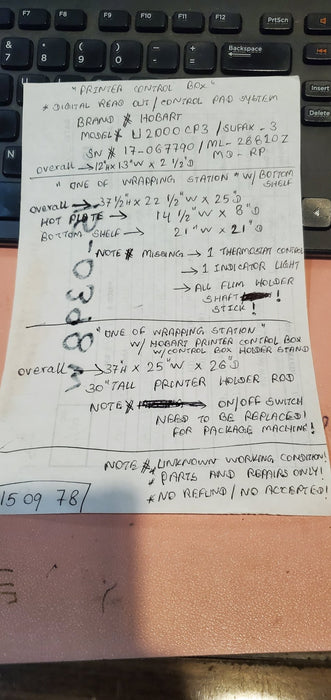 F7 F8 F9 F10 F11 F12 PrtScn
& * ( ) _ + Backspace
7 8 9 0 - =
Insert
Delete
"PRINTER CONTROL BOX"
* DIGITAL READ OUT / CONTROL PAD SYSTEM
BRAND * HOBART
MODEL * U2000CP3 / SUFAX - 3
SN * 17-067790 / ML-28610Z
MO - RP
overall → 12"H x 13"W x 2 1/2"D
"ONE OF WRAPPING STATION" W/ BOTTOM SHELF
overall → 37 1/2"H x 22 1/2"W x 25"D
HOT PLATE → 14 1/2"W x 8"D
BOTTOM SHELF → 21"W x 21"D
NOTE * MISSING → 1 THERMOSTAT CONTROL
→ 1 INDICATOR LIGHT
→ ALL FLIM HOLDER
SHAFT !
STICK !
"ONE OF WRAPPING STATION"
W/ HOBART PRINTER CONTROL BOX
W/ CONTROL BOX HOLDER STAND
overall → 37"H x 25"W x 26"D
30" TALL PRINTER HOLDER ROD
NOTE * → ON/OFF SWITCH
NEED TO BE REPLACED!
FOR PACKAGE MACHINE!
NOTE * UNKNOWN WORKING CONDITION!
* PARTS AND REPAIRS ONLY!
* NO REFUND / NO ACCEPTED!
15 09 78